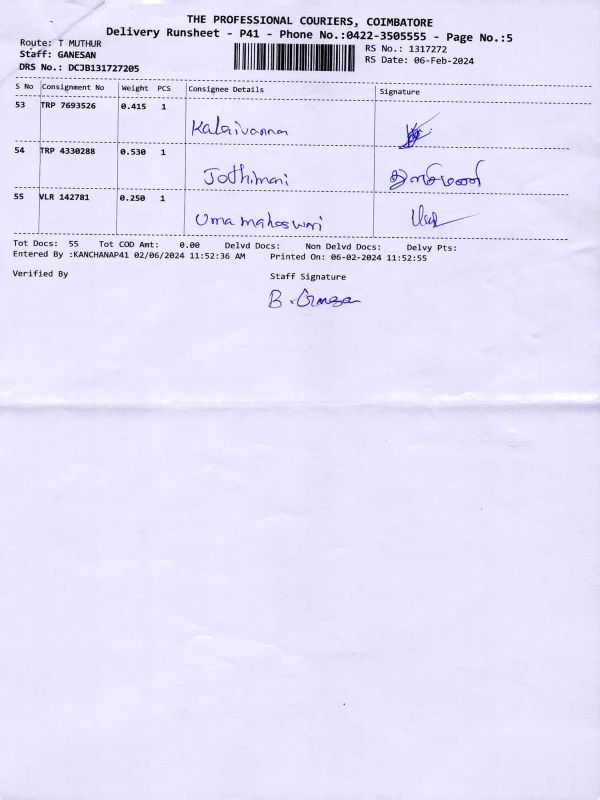 THE PROFESSIONAL COURIERS, COIMBATORE
Delivery Runsheet - P41 - Phone No.:0422-3505555 - Page No.:5
Route: T MUTHUR
RS No.: 1317272
Staff: GANESAN
RS Date: 06-Feb-2024
DRS No.: DCJB131727205
S No Consignment No Weight PCS Consignee Details Signature
53 TRP 7693526 0.415 1
Kalaivanna
54 TRP 4330288 0.530 1
Jothimani
55 VLR 142781 0.250 1
Uma maheswari
Tot Docs: 55 Tot COD Amt: 0.00 Delvd Docs: Non Delvd Docs: Delvy Pts:
Entered By :KANCHANAP41 02/06/2024 11:52:36 AM Printed On: 06-02-2024 11:52:55
Verified By Staff Signature